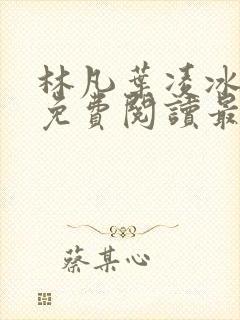 林凡葉凌冰
免費閱讀最
蔡某心